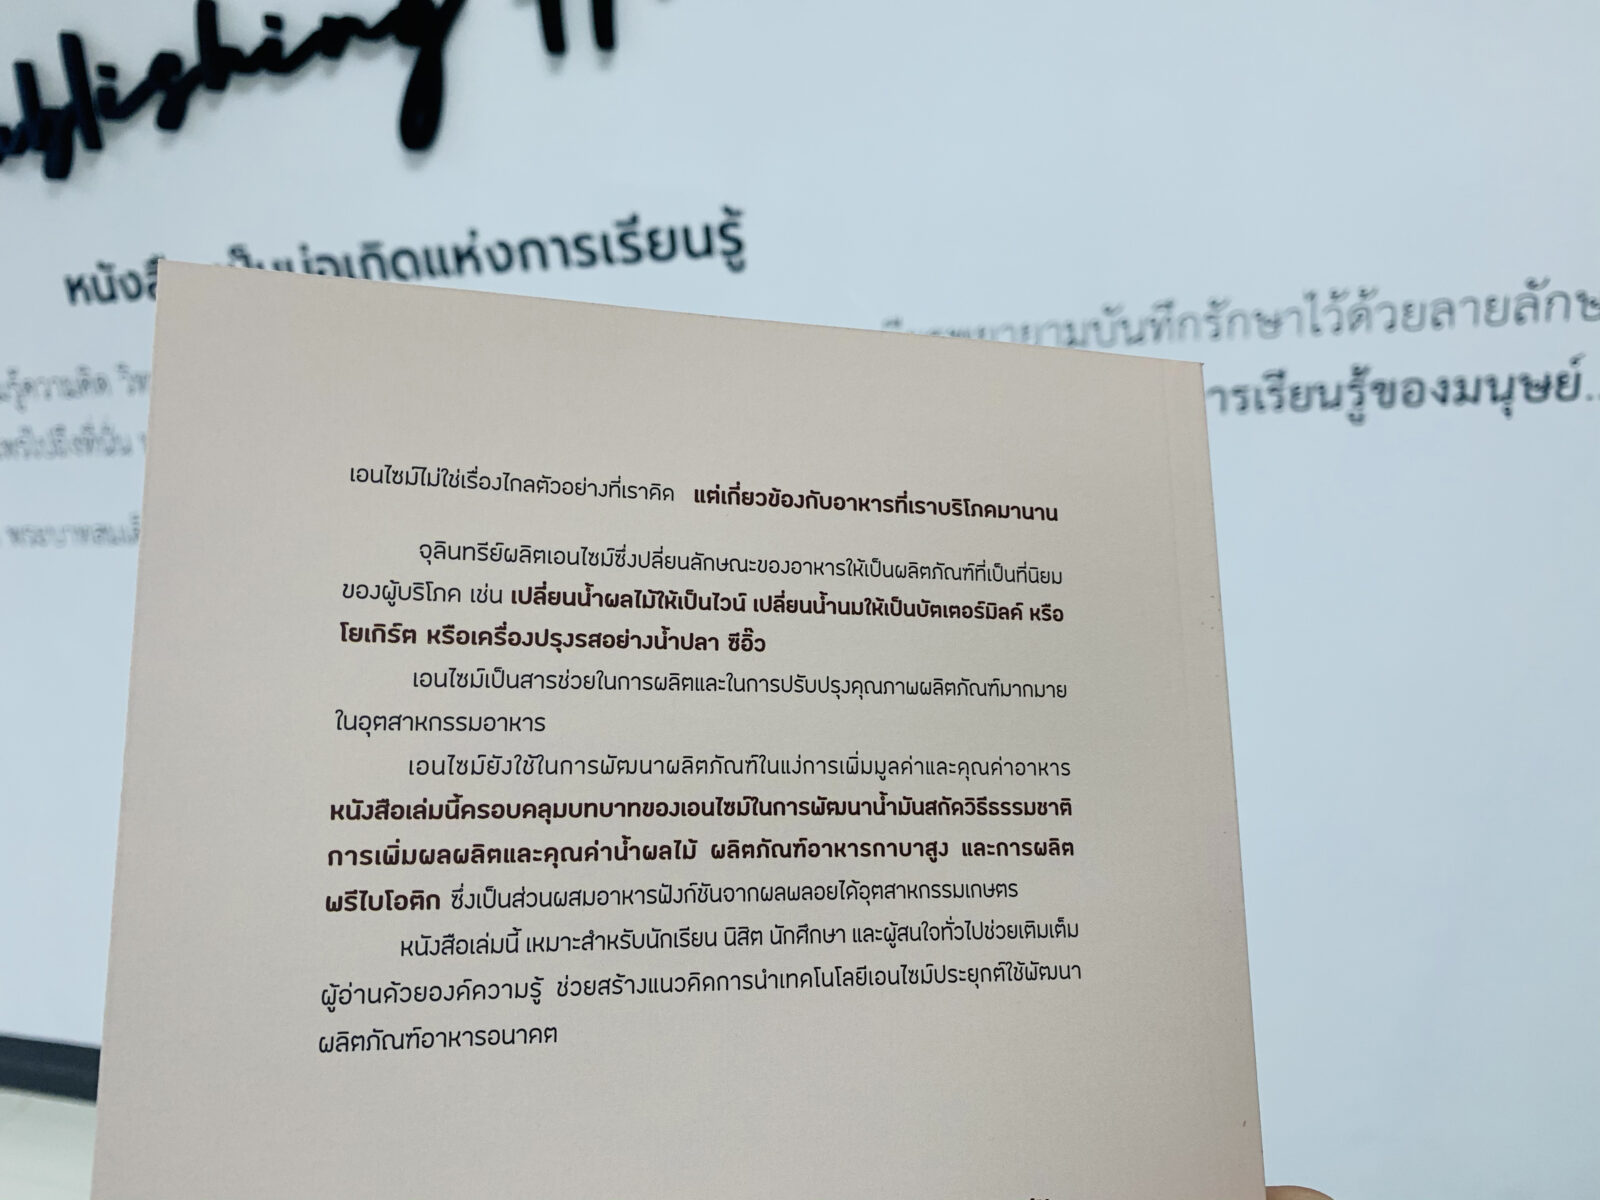 หนังสือเป็นบ่อเกิดแห่งการเรียนรู้
พยายามบันทึกรักษาไว้ด้วยลายลักษ
การเรียนรู้ของมนุษย์...
เอนไซม์ไม่ใช่เรื่องไกลตัวอย่างที่เราคิด แต่เกี่ยวข้องกับอาหารที่เราบริโภคมานาน
จุลินทรีย์ผลิตเอนไซม์ซึ่งเปลี่ยนลักษณะของอาหารให้เป็นผลิตภัณฑ์ที่เป็นที่นิยม
ของผู้บริโภค เช่น เปลี่ยนน้ำผลไม้ให้เป็นไวน์ เปลี่ยนน้ำนมให้เป็นบัตเตอร์มิลค์ หรือ
โยเกิร์ต หรือเครื่องปรุงรสอย่างน้ำปลา ซีอิ๊ว
เอนไซม์เป็นสารช่วยในการผลิตและในการปรับปรุงคุณภาพผลิตภัณฑ์มากมาย
ในอุตสาหกรรมอาหาร
เอนไซม์ยังใช้ในการพัฒนาผลิตภัณฑ์ในแง่การเพิ่มมูลค่าและคุณค่าอาหาร
หนังสือเล่มนี้ครอบคลุมบทบาทของเอนไซม์ในการพัฒนาน้ำมันสกัดวิธีธรรมชาติ
การเพิ่มผลผลิตและคุณค่าน้ำผลไม้ ผลิตภัณฑ์อาหารกาบาสูง และการผลิต
พรีไบโอติก ซึ่งเป็นส่วนผสมอาหารฟังก์ชันจากผลพลอยได้อุตสาหกรรมเกษตร
หนังสือเล่มนี้ เหมาะสำหรับนักเรียน นิสิต นักศึกษา และผู้สนใจทั่วไปช่วยเติมเต็ม
ผู้อ่านด้วยองค์ความรู้ ช่วยสร้างแนวคิดการนำเทคโนโลยีเอนไซม์ประยุกต์ใช้พัฒนา
ผลิตภัณฑ์อาหารอนาคต